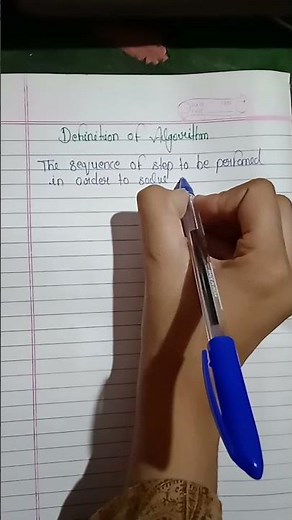 Definition of Algorithm
The sequence of step to be performed
in order to solve